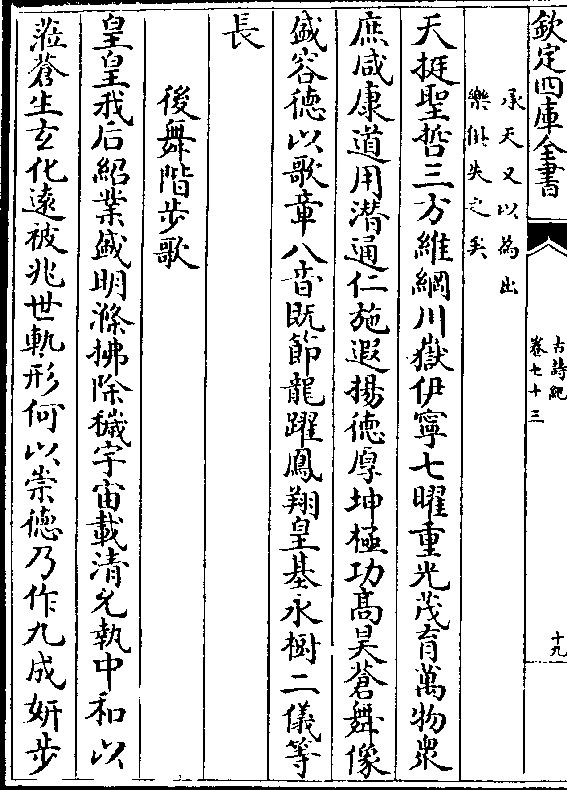 欽定四庫全書
古詩紀
卷七十三
十九
承天又以為出
樂俳失之矣
天挺聖哲三方維綱川嶽伊寧七曜重光茂育萬物衆
庶咸康道用潛通仁施遐揚德厚坤極功高昊蒼舞像
盛容德以歌章八音既節龍躍鳳翔皇基永樹二儀等
長
後舞階步歌
皇皇我后紹業盛明滌拂除穢宇宙載清允執中和以
蒞蒼生玄化遠被兆世軌形何以崇德乃作九成妍步